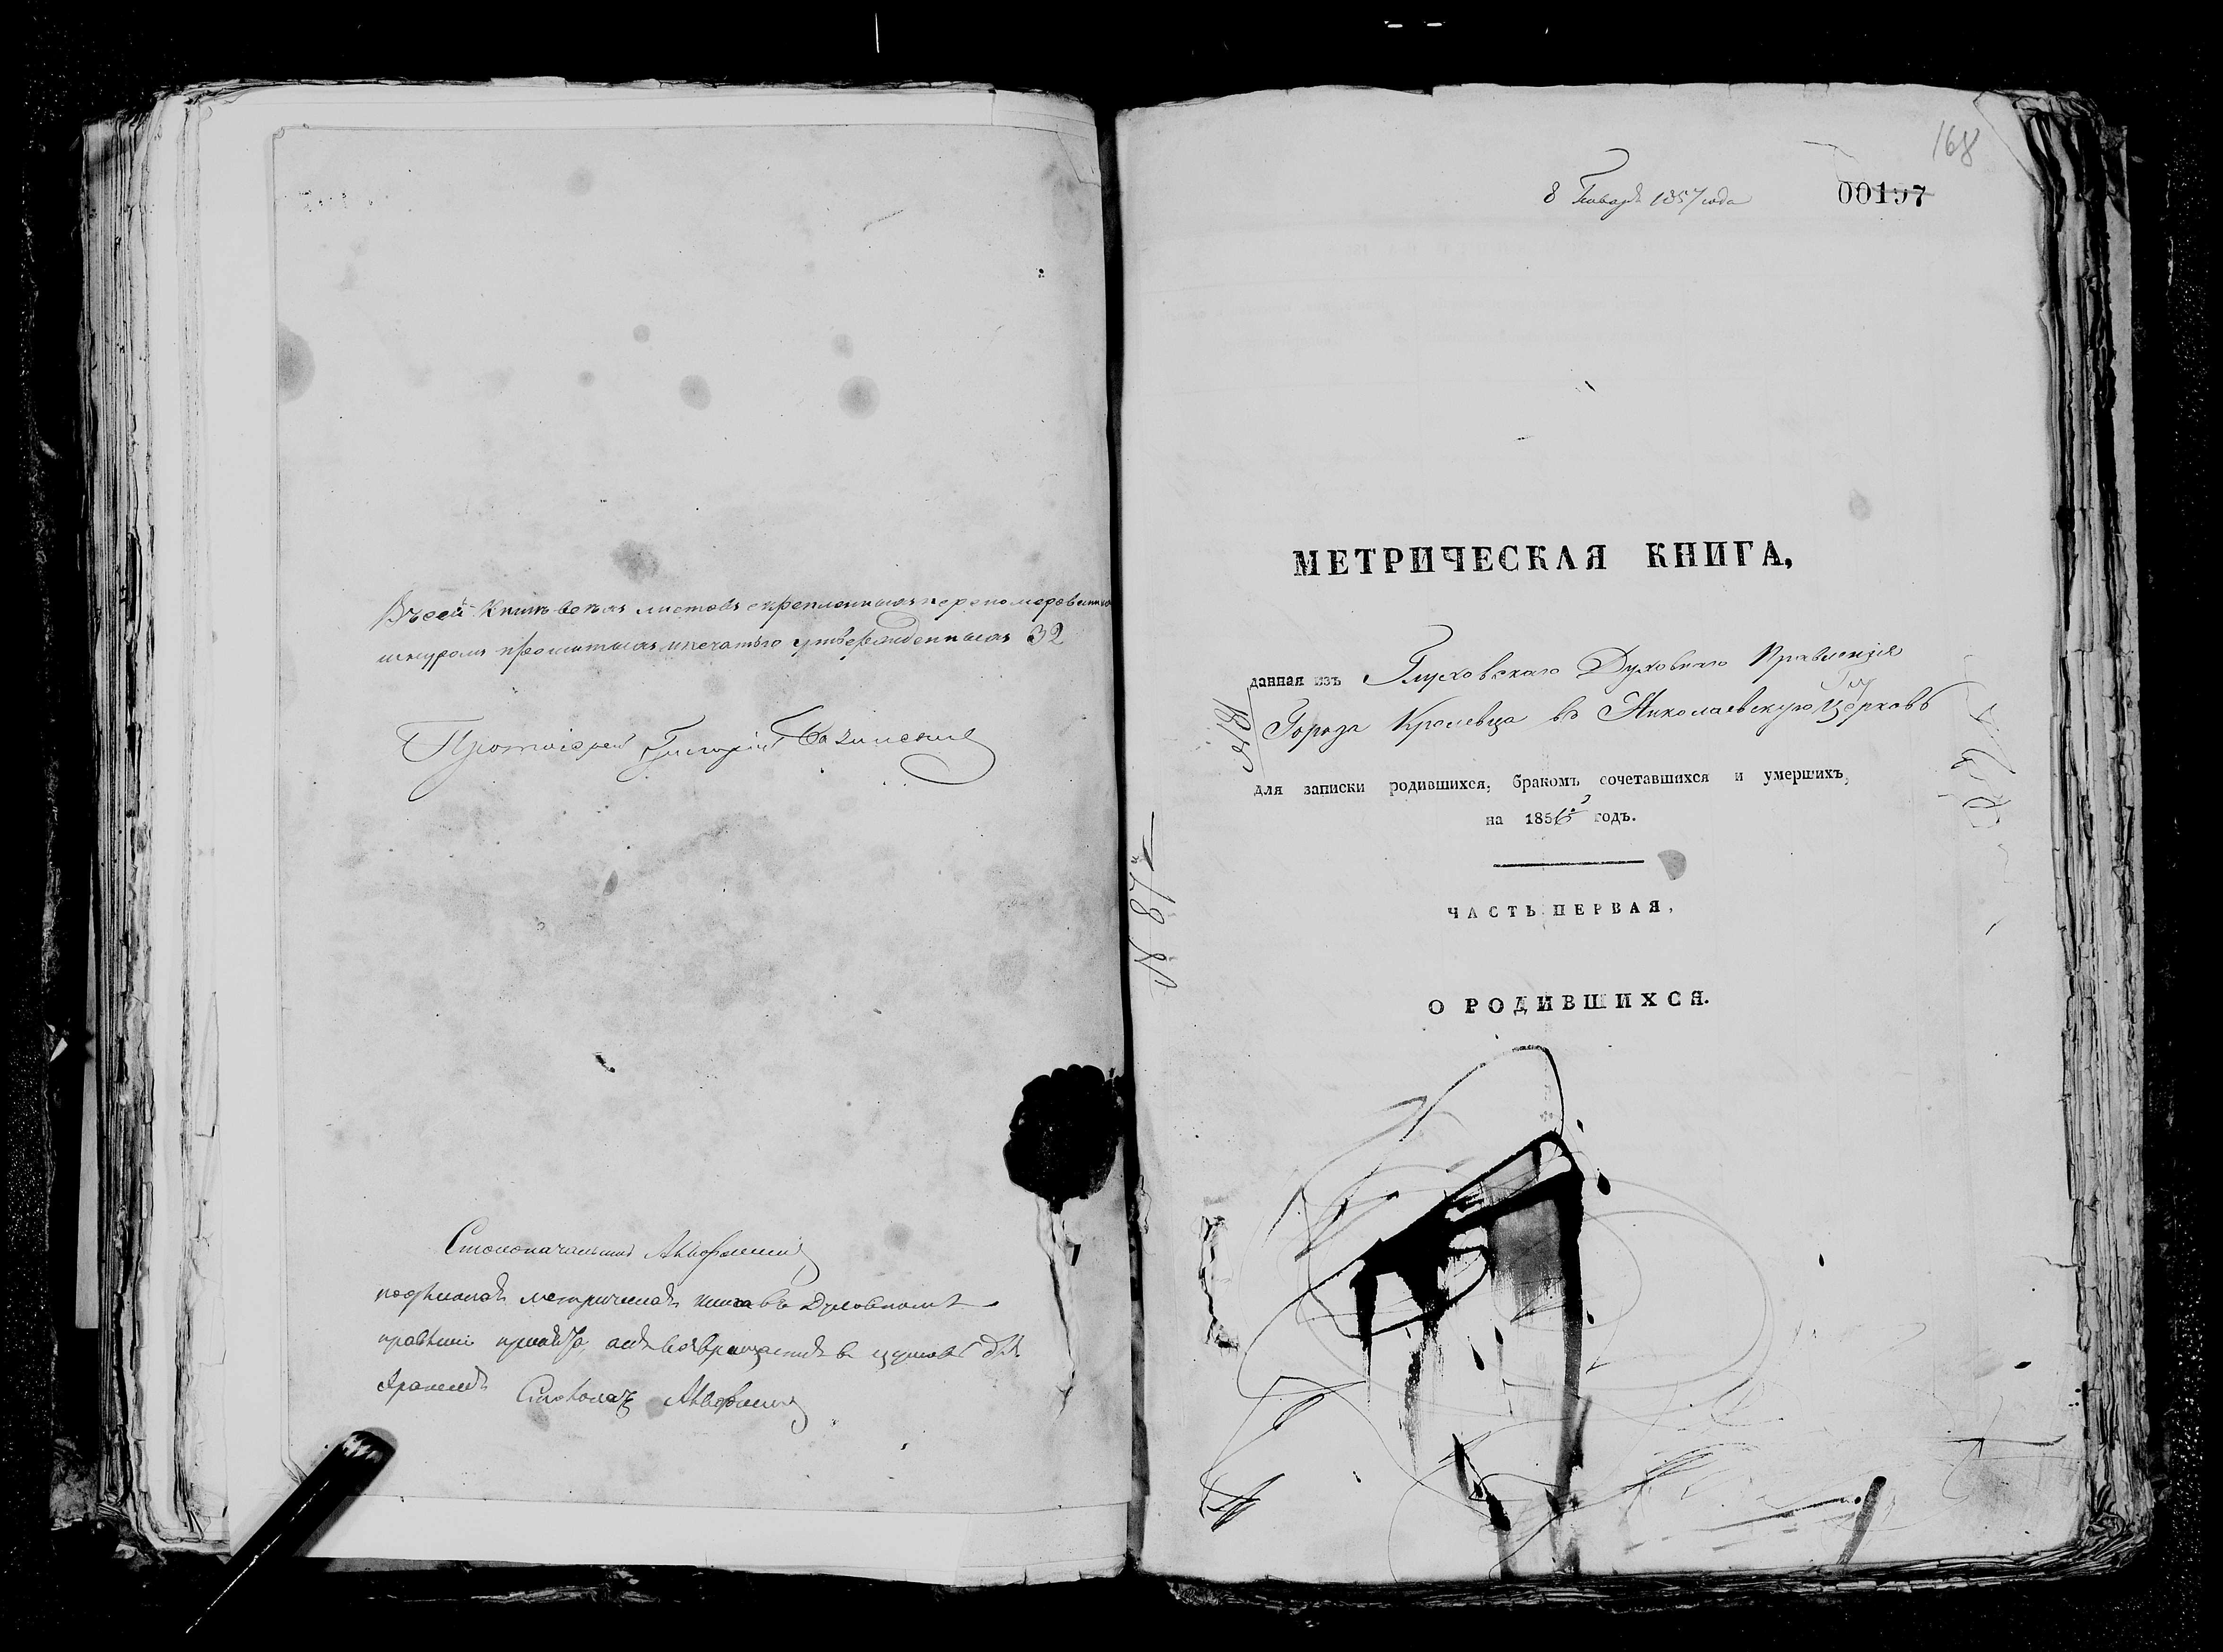 Въ сей Книгѣ всѣхъ листовъ скрепленныхъ перономерованныхъ
шнуромъ прошитыхъ и печатью утвержденныхъ 32
Протоіерей Григорій
Столоначальникъ
метрическая книга въ Духовномъ
правленіи возвращается въ церковь для
храненія
168
8 Января 1857 года
00197
МЕТРИЧЕСКАЯ КНИГА,
данная изъ Глуховскаго Духовнаго Правленія
Города Кролевца въ Николаевскую Церковь
для записки родившихся, бракомъ сочетавшихся и умершихъ,
на 1856 годъ.
ЧАСТЬ ПЕРВАЯ,
О РОДИВШИХСЯ.
№ 87